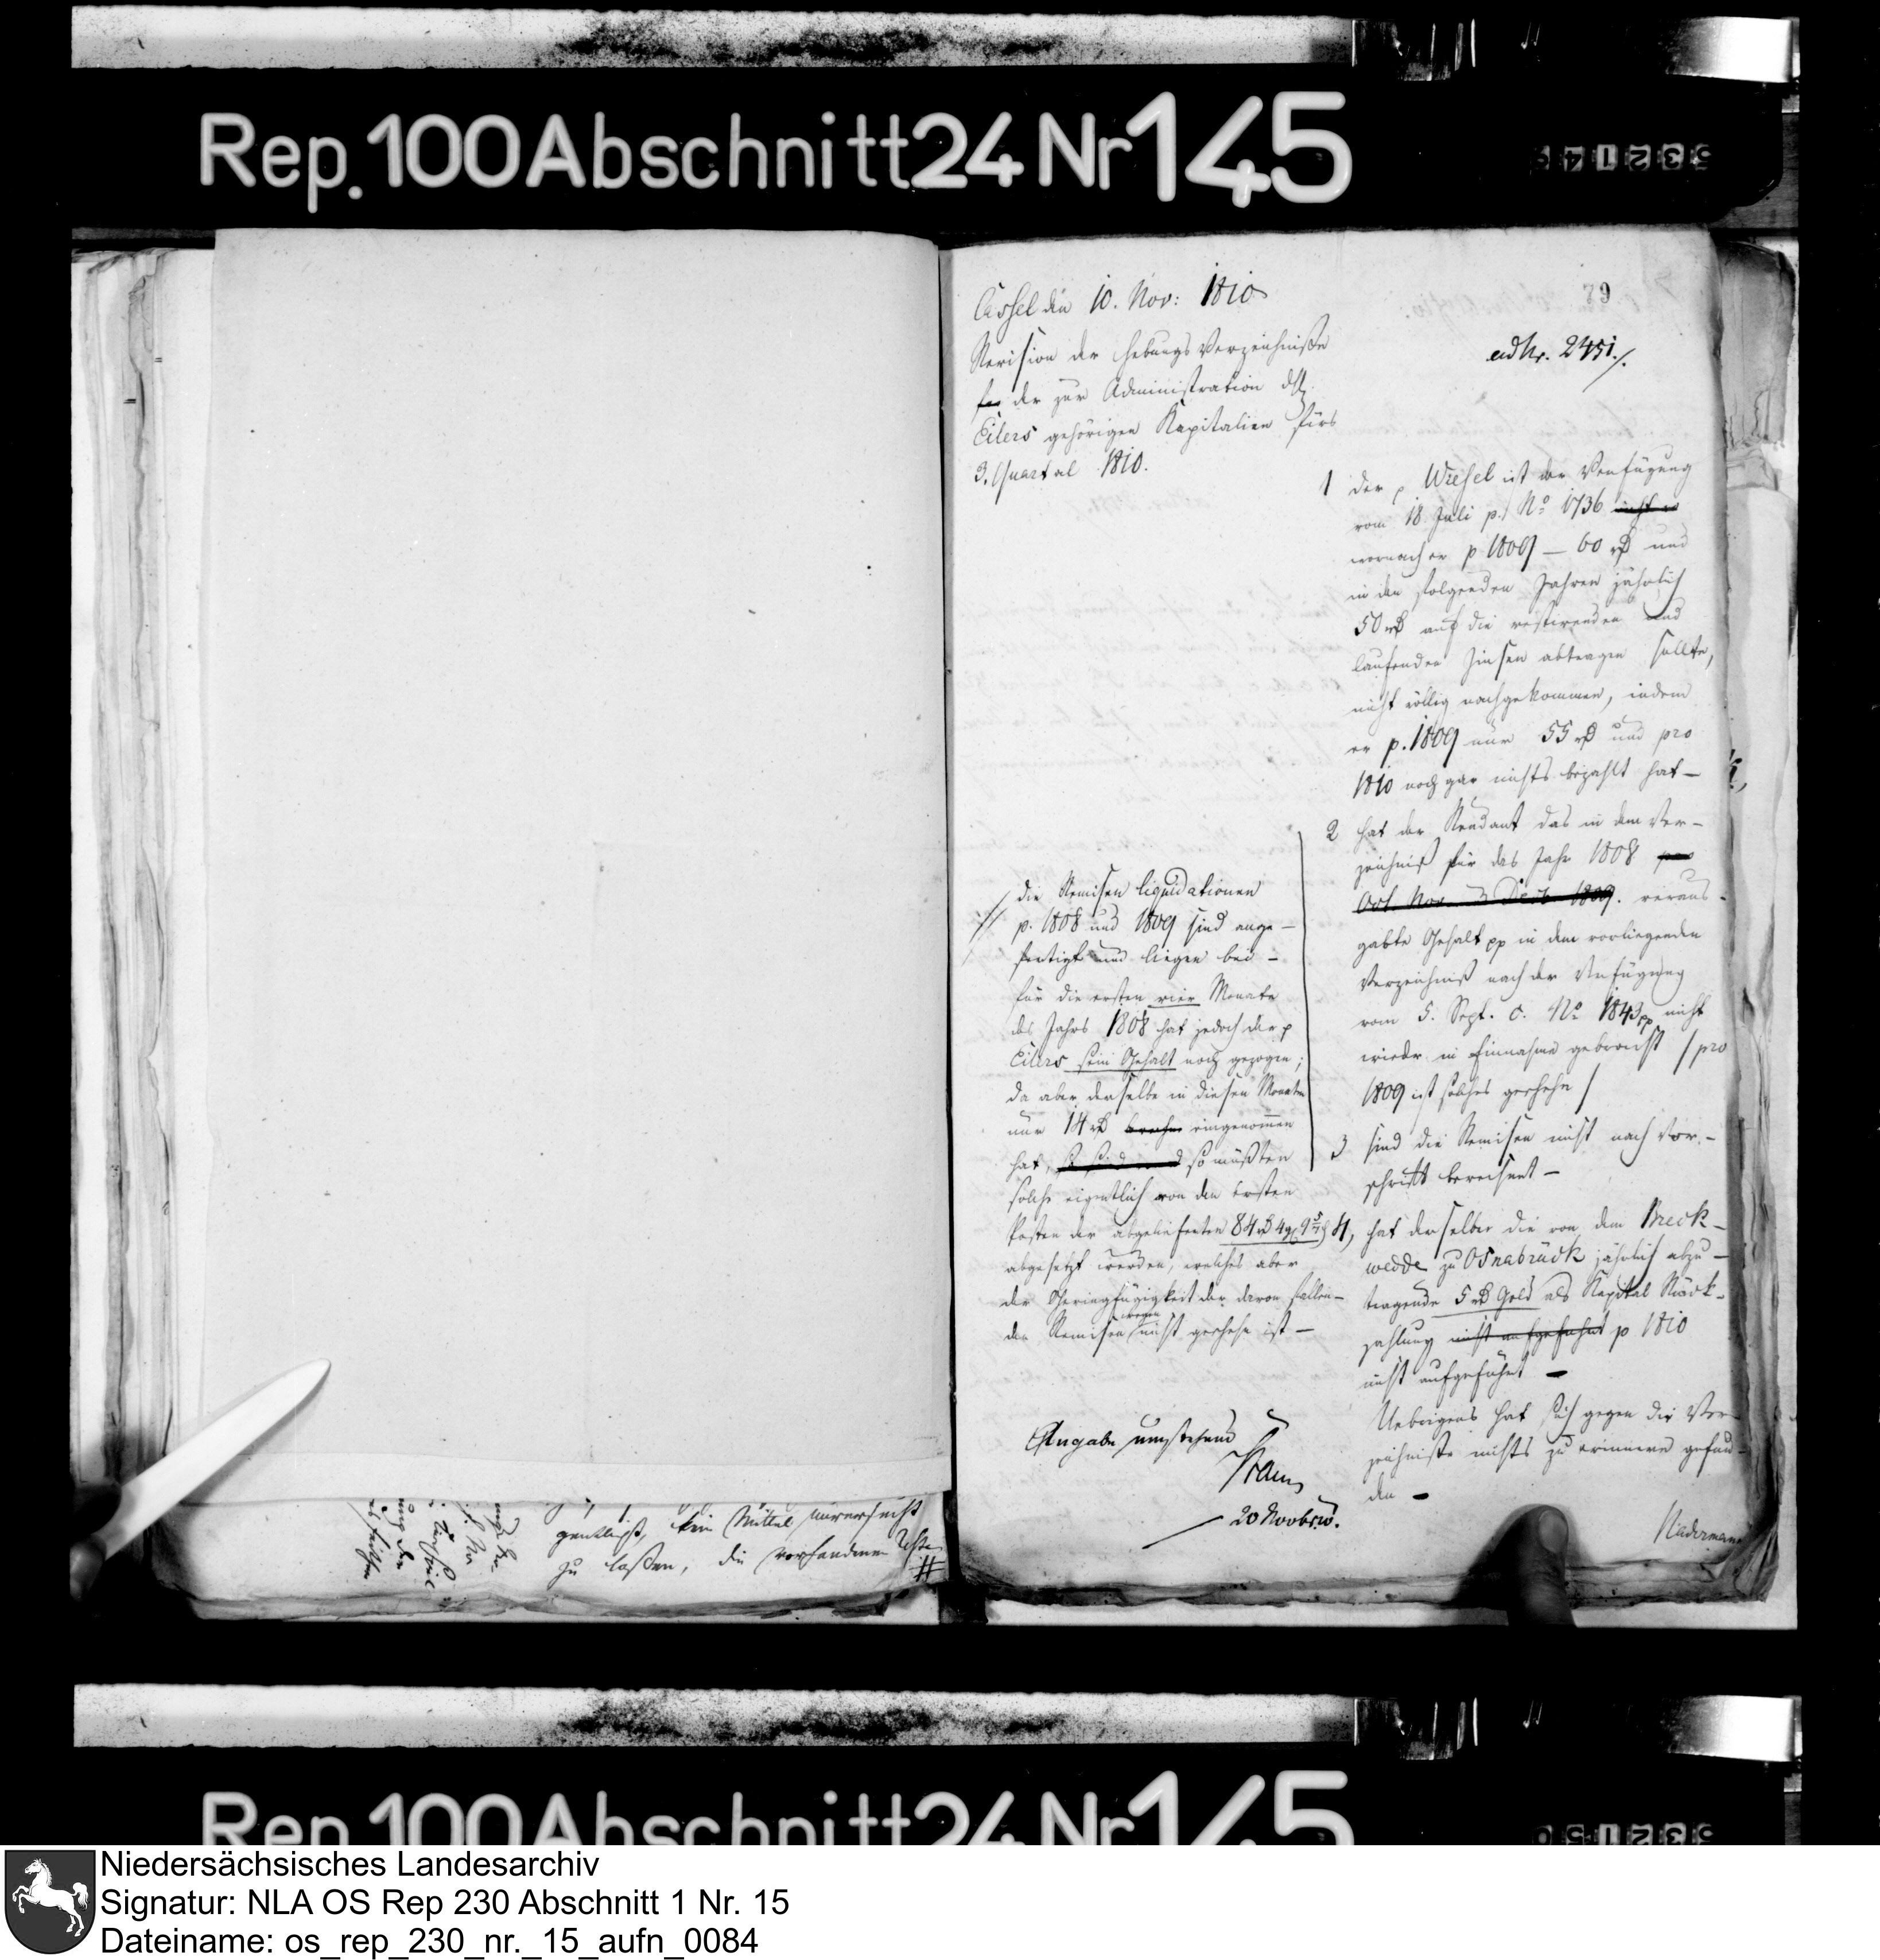 Rep. 100 Abschnitt 24 Nr 145
79
Cassel den 10. Nov: 1810
Revision der Hebungs Verzeichniße
der zur Administration des
Eilers gehörigen Kapitalien fürs
3. Quartal 1810.
ad Nr. 2451./.
1 der p Wiesel ist der Verfügung
vom 18 Juli p. No 1736
wornach er p 1809 — 60 rß und
in den folgenden Jahren jährlich
50 rß auf die restirenden und
laufenden Zinsen abtragen sollte,
nicht völlig nachgekommen, indem
er p. 1809 nur 55 rß und pro
1810 noch gar nichts bezahlt hat —
2 hat der Rendant das in dem Ver-
zeichniß für das Jahr 1808 pro
Oct. Nov. Dec. 1809. veraus-
gabte Gehalt pp in dem vorliegenden
Verzeichniß nach der Verfügung
vom 5. Sept. c. No 1843 pp nicht
wieder in Einnahme gebracht / pro
1809 ist solches geschehn /
3 sind die Remisen nicht nach Vor-
schrift berechnet —
4, hat derselbe die von dem Breck-
wedde zu Osnabrück jährlich abzu-
tragende 5 rß Gold als Kapital Rück-
zahlung nicht aufgeführt p 1810
nicht aufgeführt —
Uebrigens hat sich gegen die Ver-
zeichniße nichts zu erinnern gefun-
den —
die Remisen liquidationen
p. 1808 und 1809 sind ange-
fertigt und liegen bei —
für die ersten vier Monate
des Jahrs 1808 hat jedoch der p
Eilers sein Gehalt noch gezogen;
da aber derselbe in diesen Monaten
nur 14 rß eingenommen
hat, so müßten
solche eigentlich von den ersten
Posten der abgelieferten 84 rß 4
abgesetzt werden, welches aber
der Geringfügigkeit der davon fallen-
den Remisen wegen nicht geschehn ist —
Angabe umstehend
20 Novbr.
gentlichst, kein Mittel unversucht
zu laßen, die vorhandenen Reste
#
Rep. 100 Abschnitt 24 Nr 145
Niedersächsisches Landesarchiv
Signatur: NLA OS Rep 230 Abschnitt 1 Nr. 15
Dateiname: os_rep_230_nr._15_aufn_0084